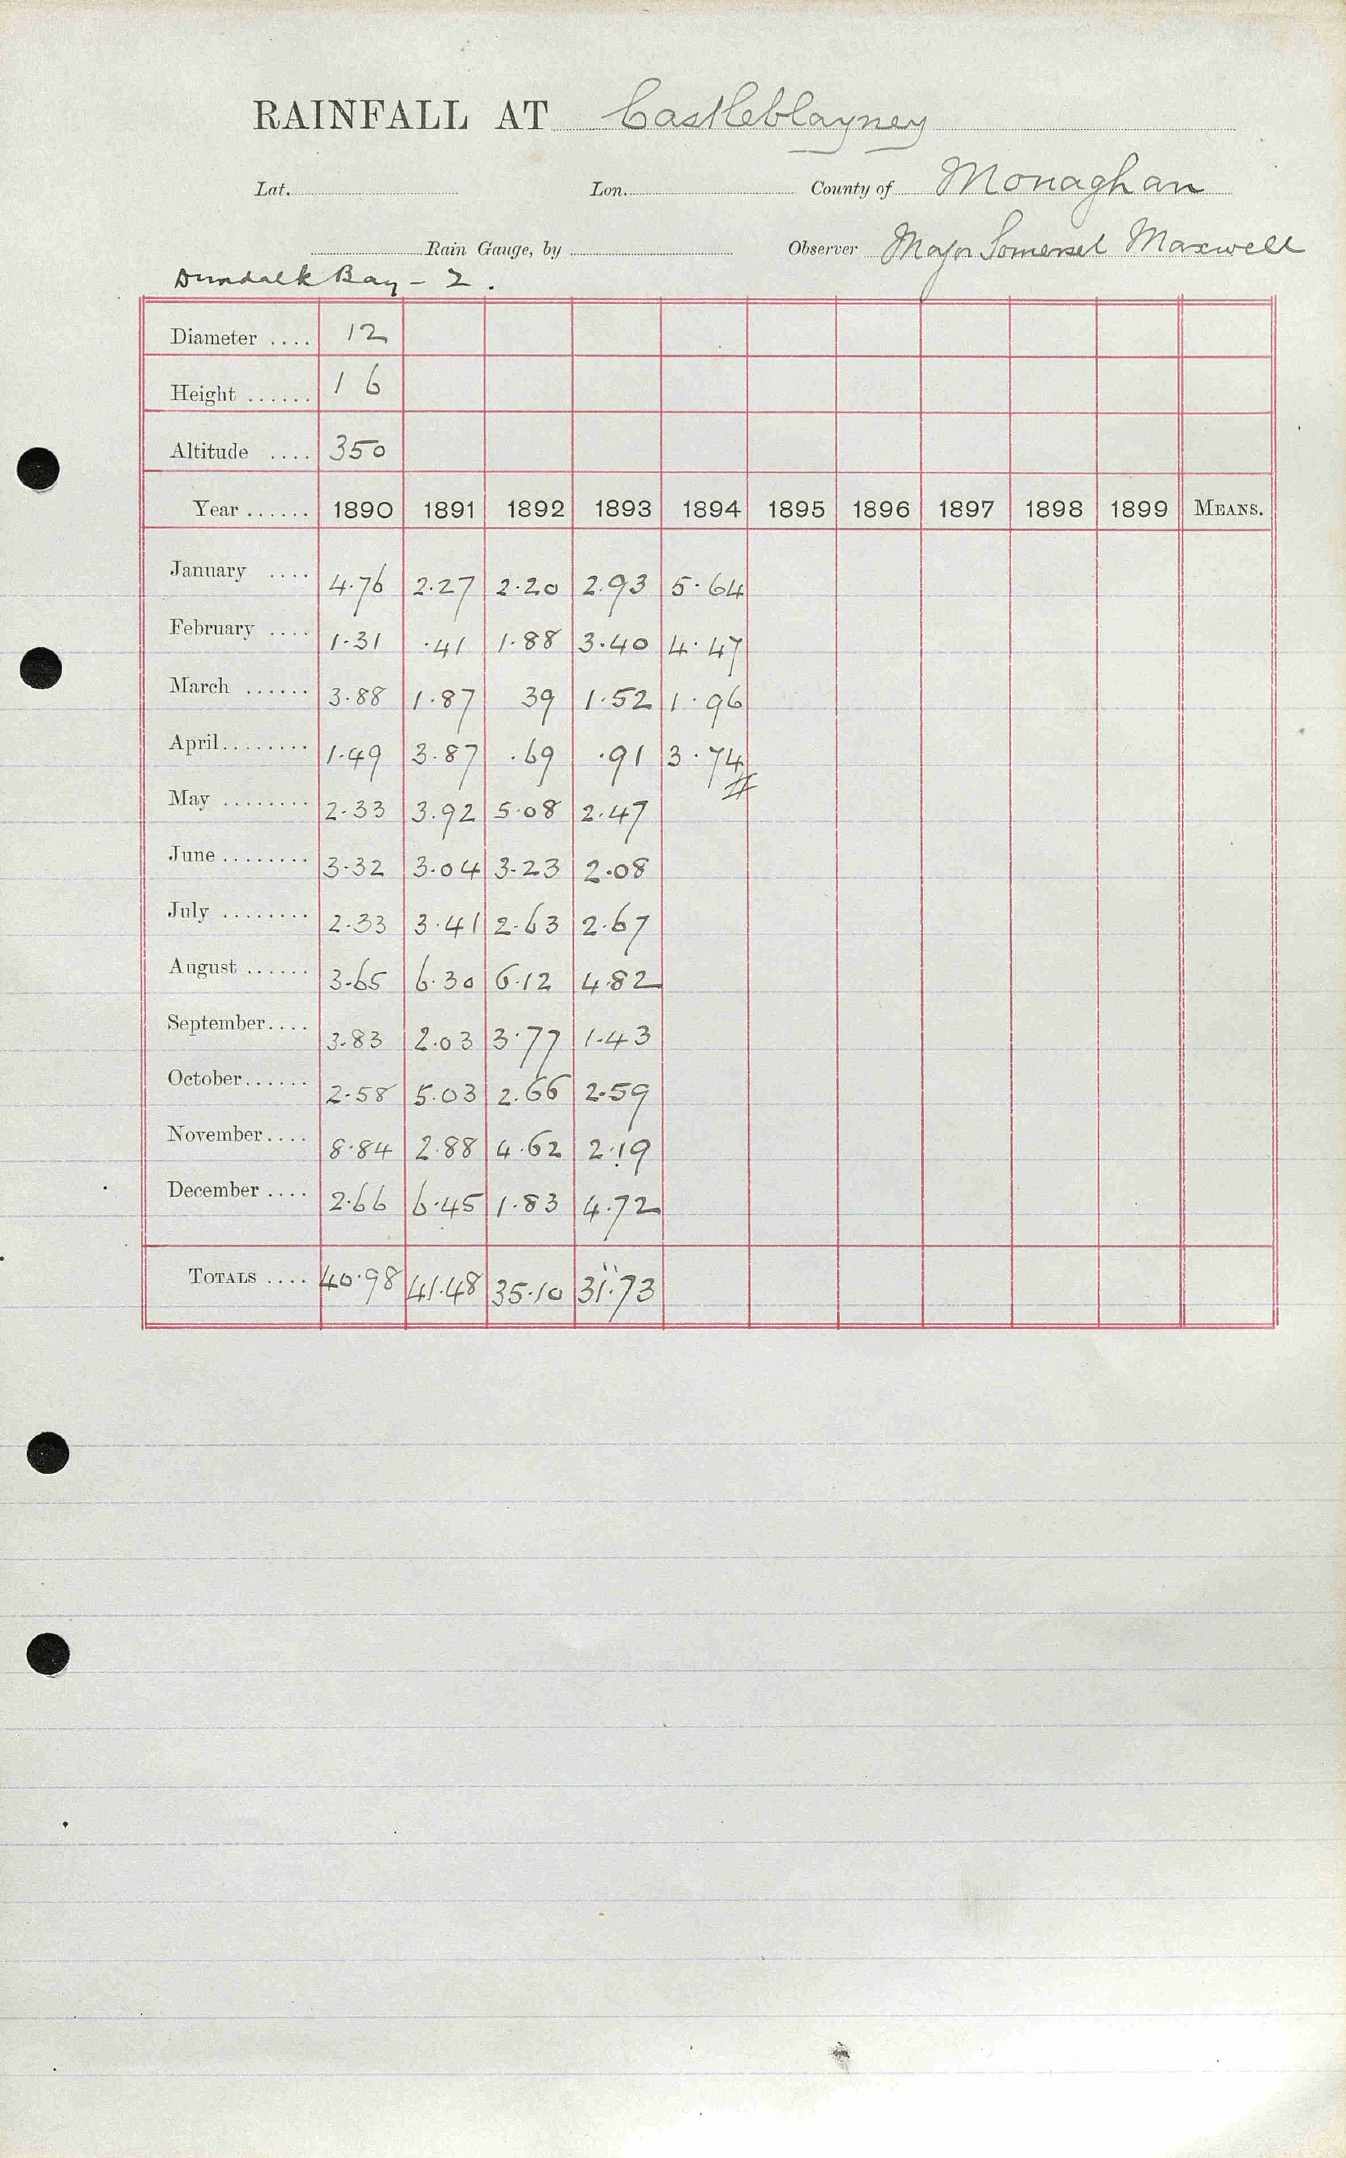 RAINFALL AT Castleblayney
Lat. Lon. County of Monaghan
Rain Gauge, by Observer Major Somerset Maxwell
Dundalk Bay - 2.
Diameter .... 12
Height ...... 1 6
Altitude .... 350
Year ...... 1890 1891 1892 1893 1894 1895 1896 1897 1898 1899 MEANS.
January .... 4.76 2.27 2.20 2.93 5.64
February .... 1.31 .41 1.88 3.40 4.47
March ...... 3.88 1.87 39 1.52 1.96
April........ 1.49 3.87 .69 .91 3.74
May ........ 2.33 3.92 5.08 2.47
June ........ 3.32 3.04 3.23 2.08
July ........ 2.33 3.41 2.63 2.67
August ...... 3.65 6.30 6.12 4.82
September.... 3.83 2.03 3.77 1.43
October...... 2.58 5.03 2.66 2.59
November.... 8.84 2.88 4.62 2.19
December .... 2.66 6.45 1.83 4.72
TOTALS .... 40.98 41.48 35.10 31.73